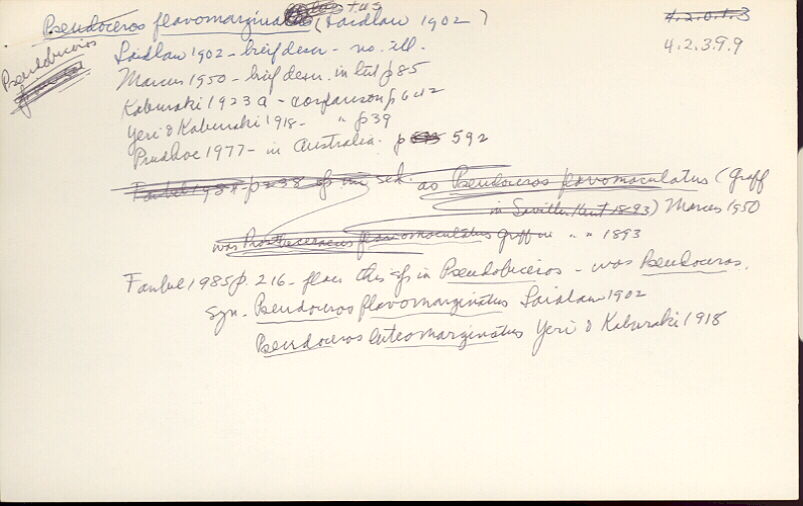 Pseudoceros flavomarginatus (Laidlaw 1902)
4.2.0.1.3
4.2.3.9.9
Pseudobiceros
Laidlaw 1902 - brief descr - no. ill.
Marcus 1950 - brief descr. in lit p85
Kaburaki 1923a - comparison p642
Yeri & Kaburaki 1918 - " p39
Prudhoe 1977 - in Australia. p 592
as Pseudoceros flavomaculatus (Graff
in Saville Kent 1893) Marcus 1950
was Prostheceraeus flavomaculatus Graff in " " 1893
Faubel 1985 p. 216 - places this sp in Pseudobiceros - was Pseudoceros.
syn. Pseudoceros flavomarginatus Laidlaw 1902
Pseudoceros luteomarginatus Yeri & Kaburaki 1918